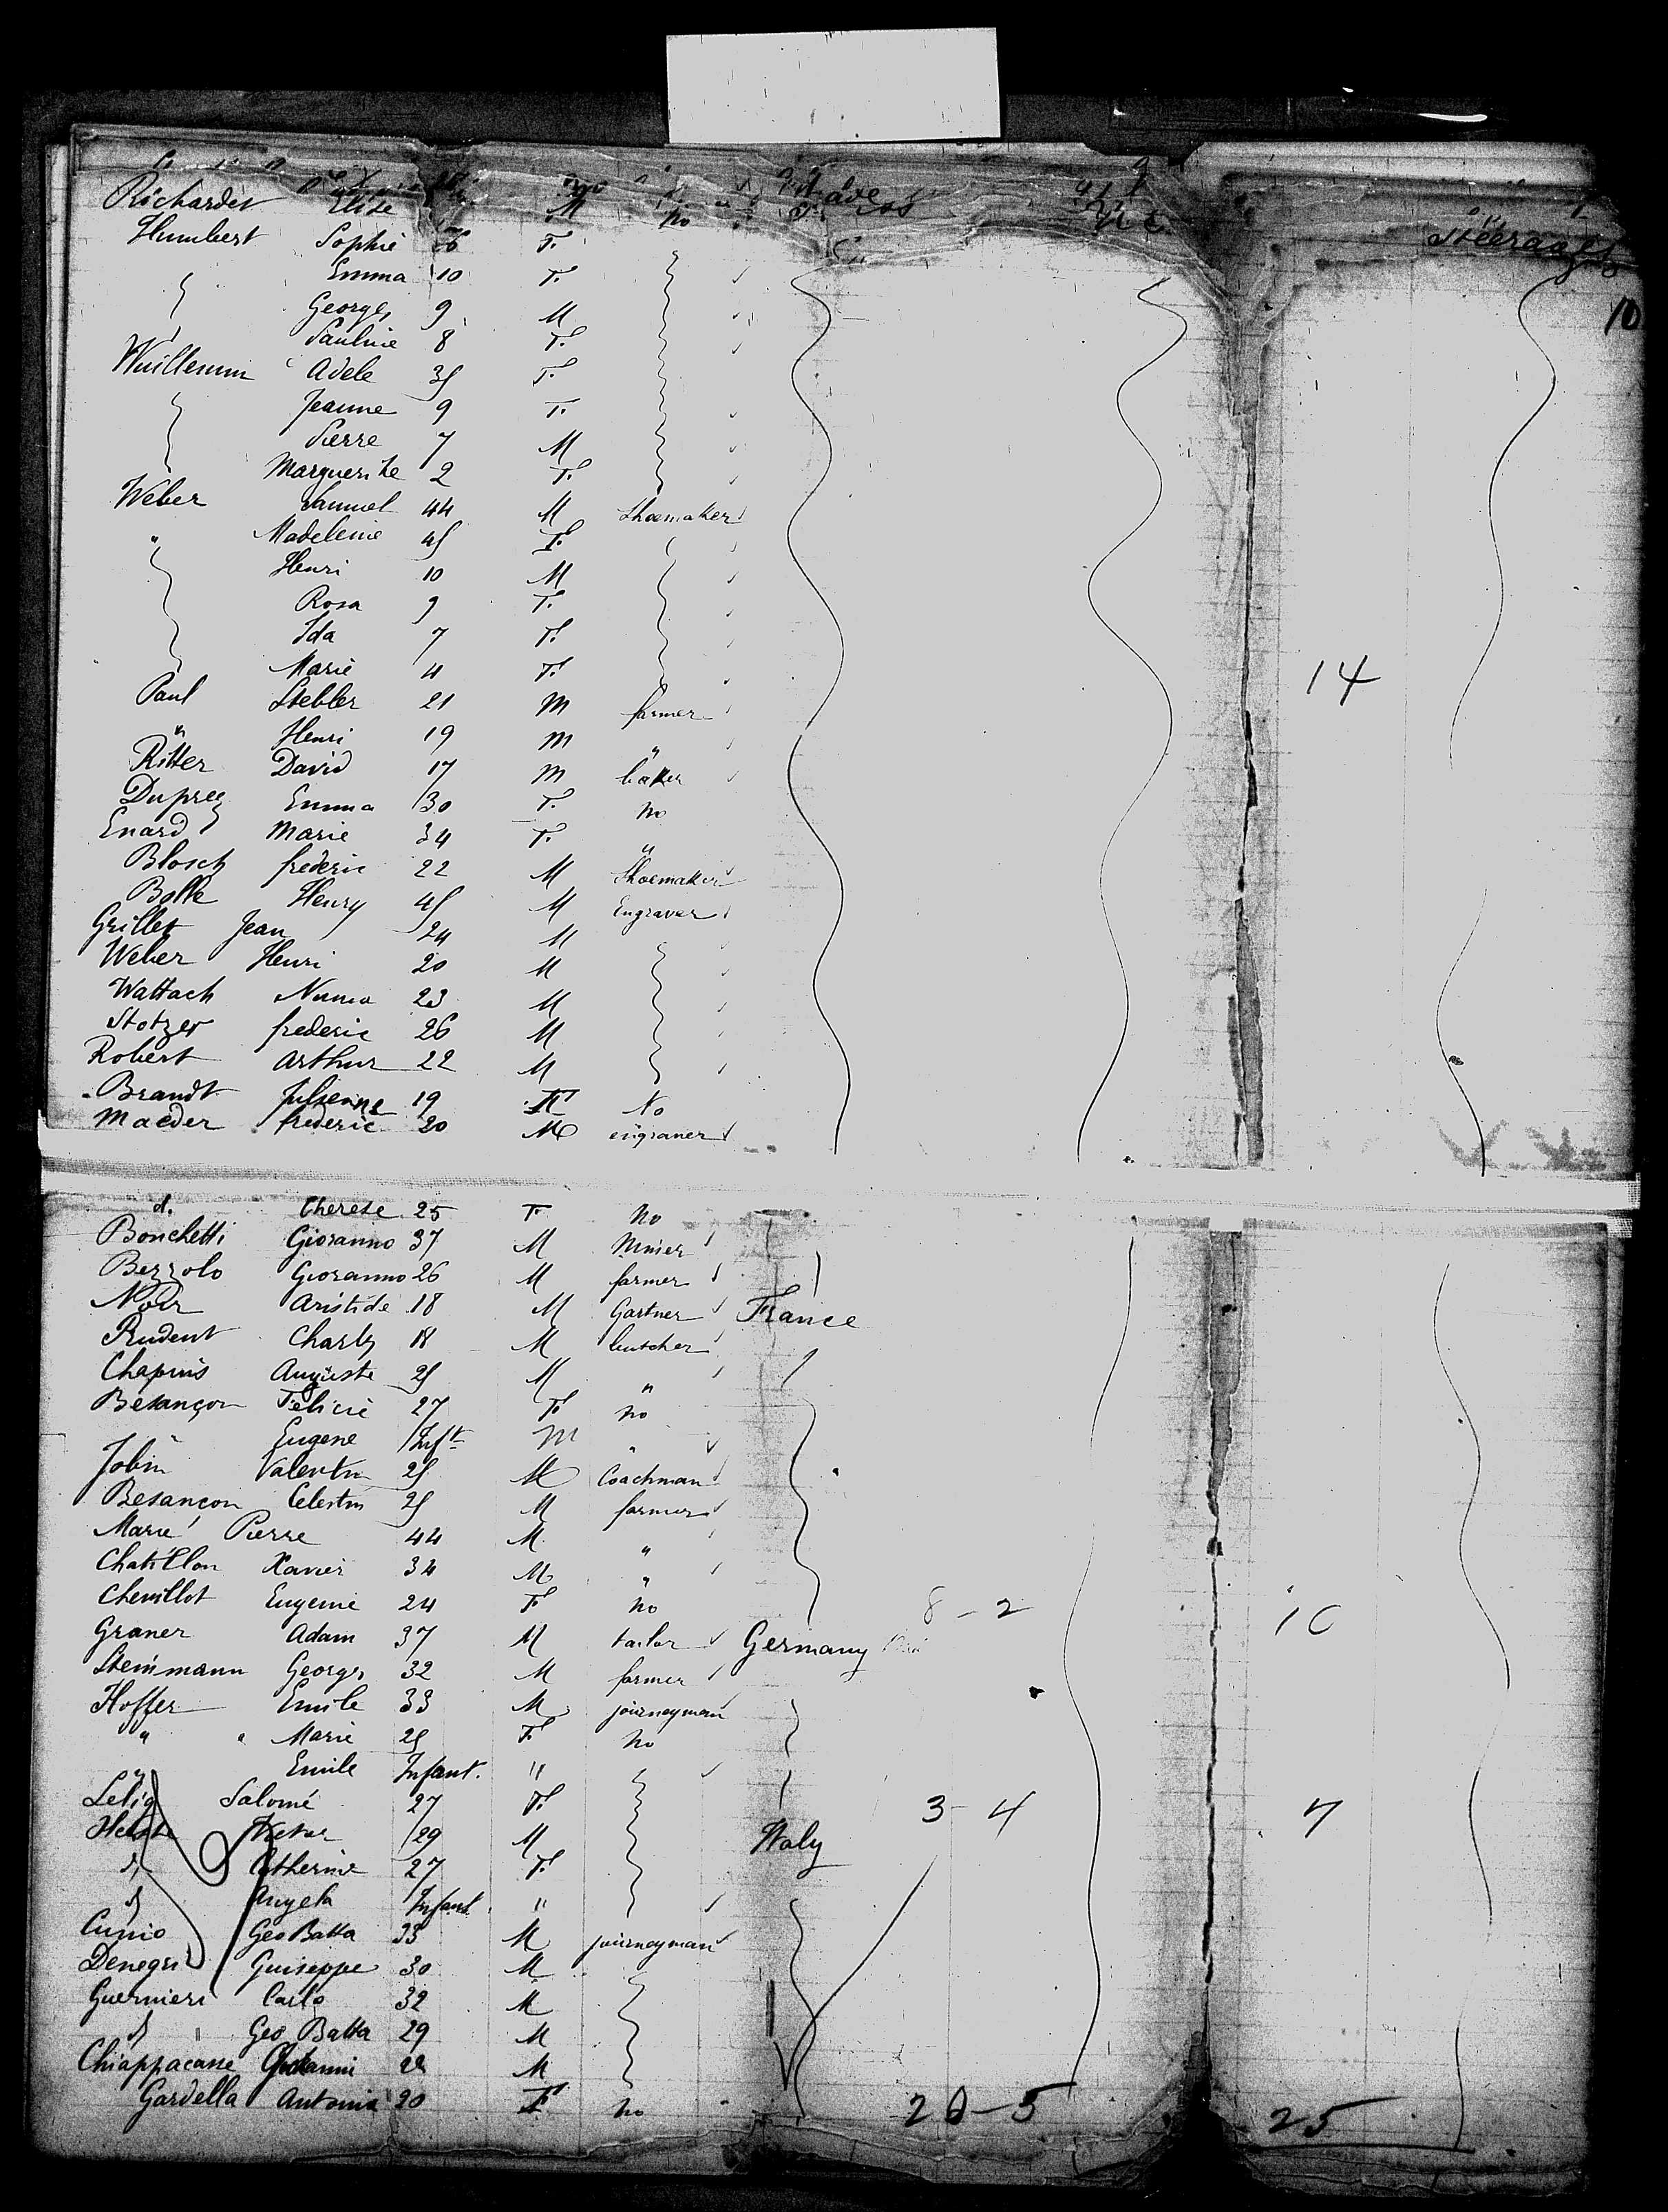 Richardet Elise M no
Humbert Sophie 26 F. Steerage
Emma 10 F.
Georges 9 M 10
Pauline 8 F.
Wuillemin Adele 35 F.
Jeanne 9 F.
Pierre 7 M
Marguerite 2 F.
Weber Samuel 44 M Shoemaker
" Madeleine 45 F.
Henri 10 M
Rosa 9 F.
Ida 7 F.
Marie 4 F. 14
Paul Stebler 21 M farmer
" Henri 19 M "
Ritter David 17 M baker
Duprez Emma 30 F. no
Enard Marie 34 F. "
Blosch frederic 22 M Shoemaker
Bolle Henry 45 M Engraver
Grillet Jean 24 M
Weber Henri 20 M
Wattach Numa 23 M
Stotzer frederic 26 M
Robert Arthur 22 M
Brandt Julienne 19 F No
Maeder frederic 20 M engraver
d. Therese 25 F. no
Bonchetti Giovanno 37 M Minier
Bezzolo Giovanno 26 M farmer
Noir Aristide 18 M Gartner France
Prudent Charly 18 M butcher
Chapuis Auguste 25 M "
Besançon Félicie 27 F. no
" Eugene Inft. M "
Jobin Valentin 25 M Coachman
Besançon Celestin 25 M farmer
Marié Pierre 44 M.
Chatillon Xavier 34 M "
Chenillot Eugenie 24 F. no 8-2 10
Graner Adam 37 M tailor Germany
Steinmann Georges 32 M farmer
Hoffer Emile 33 M journeyman
" " Marie 25 F. no
" Emile Infant. "
Lelig Salomé 27 F. 3-4 7
Victor 29 M Italy
d Catherine 27 F.
d Angela Infant "
Cunio Geo Batta 33 M journeyman
Denegri Guiseppe 30 M
Guernieri Carlo 32 M
d " Geo Batta 29 M
Chiappacasse Giovanni 22 M
Gardella Antonia 20 F no 20-5 25